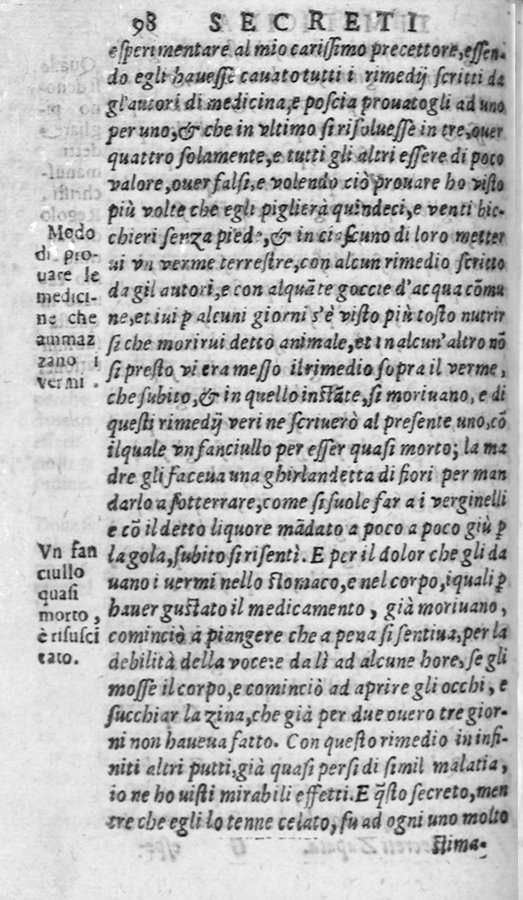 98 SECRETI
esperimentare al mio carissimo precettore, essen-
do egli hauesse cauato tutti i rimedij scritti da
gl'autori di medicina, e poscia prouatogli ad uno
per uno, & che in vltimo si risoluesse in tre, ouer
quattro solamente, e tutti gli altri essere di poco
valore, ouer falsi, e volendo ciò prouare ho visto
più volte che egli piglierà quindeci, e venti bic-
chieri senza piede, & in ciascuno di loro metter
ui vn verme terrestre, con alcun rimedio scritto
da gil autori, e con alquāte goccie d'acqua cōmu
ne, et iui p alcuni giorni s'è visto più tosto nutrir
si che morirui detto animale, et in alcun'altro nō
si presto vi era messo il rimedio sopra il verme,
che subito, & in quello instāte, si moriuano, e di
questi rimedij veri ne scriuerò al presente uno, cō
il quale vn fanciullo per esser quasi morto; la ma
dre gli faceua una ghirlandetta di fiori per man
darlo a sotterrare, come si suole far a i verginelli
e cō il detto liquore mādato a poco a poco giù p
la gola, subito si risentì. E per il dolor che gli da
uano i uermi nello stomaco, e nel corpo, i quali p
hauer gustato il medicamento, già moriuano,
cominciò a piangere che a pena si sentiua, per la
debilità della voce: e da lì ad alcune hore, se gli
mosse il corpo, e cominciò ad aprire gli occhi, e
succhiar la zina, che già per due ouero tre gior-
ni non haueua fatto. Con questo rimedio in infi-
niti altri putti, già quasi persi di simil malatia,
io ne ho uisti mirabili effetti. E q̄sto secreto, men
tre che egli lo tenne celato, fu ad ogni uno molto
stima-
Modo
di pro-
uare le
medici-
ne che
ammaz
zano i
vermi.
Vn fan
ciullo
quasi
morto,
è risusci
tato.